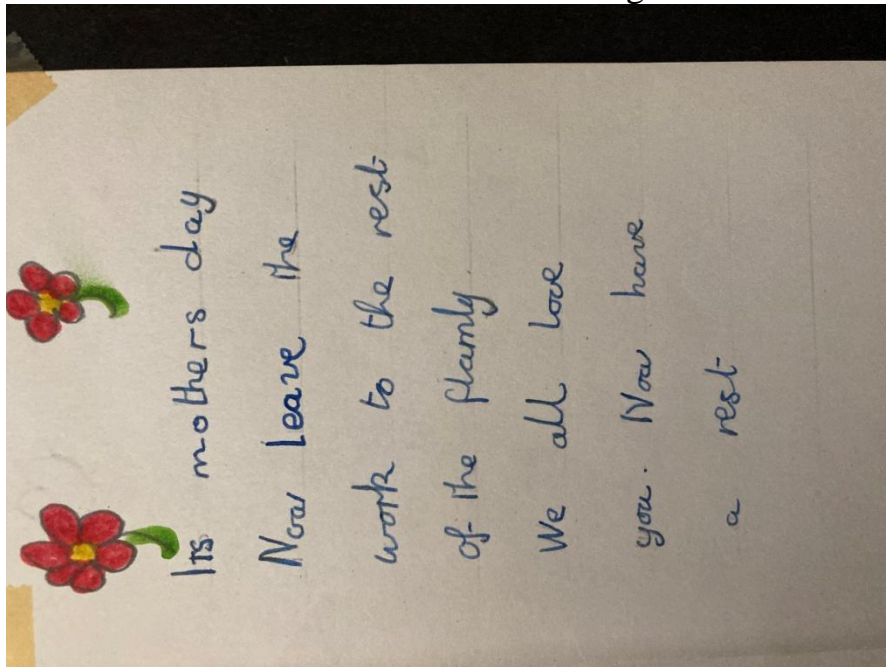 Its mothers day
Now Leave the
work to the rest
of the flamly.
We all love
you. Now have
a rest